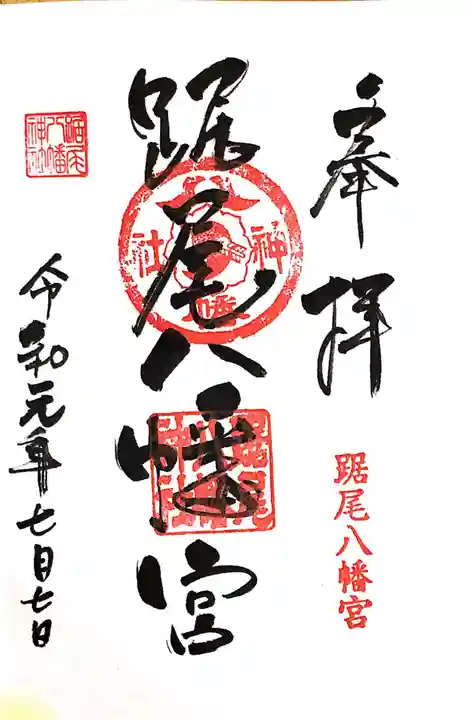 奉拝
踞尾八幡宮
踞尾八幡宮
神社
踞尾八幡神社
令和元年七月七日